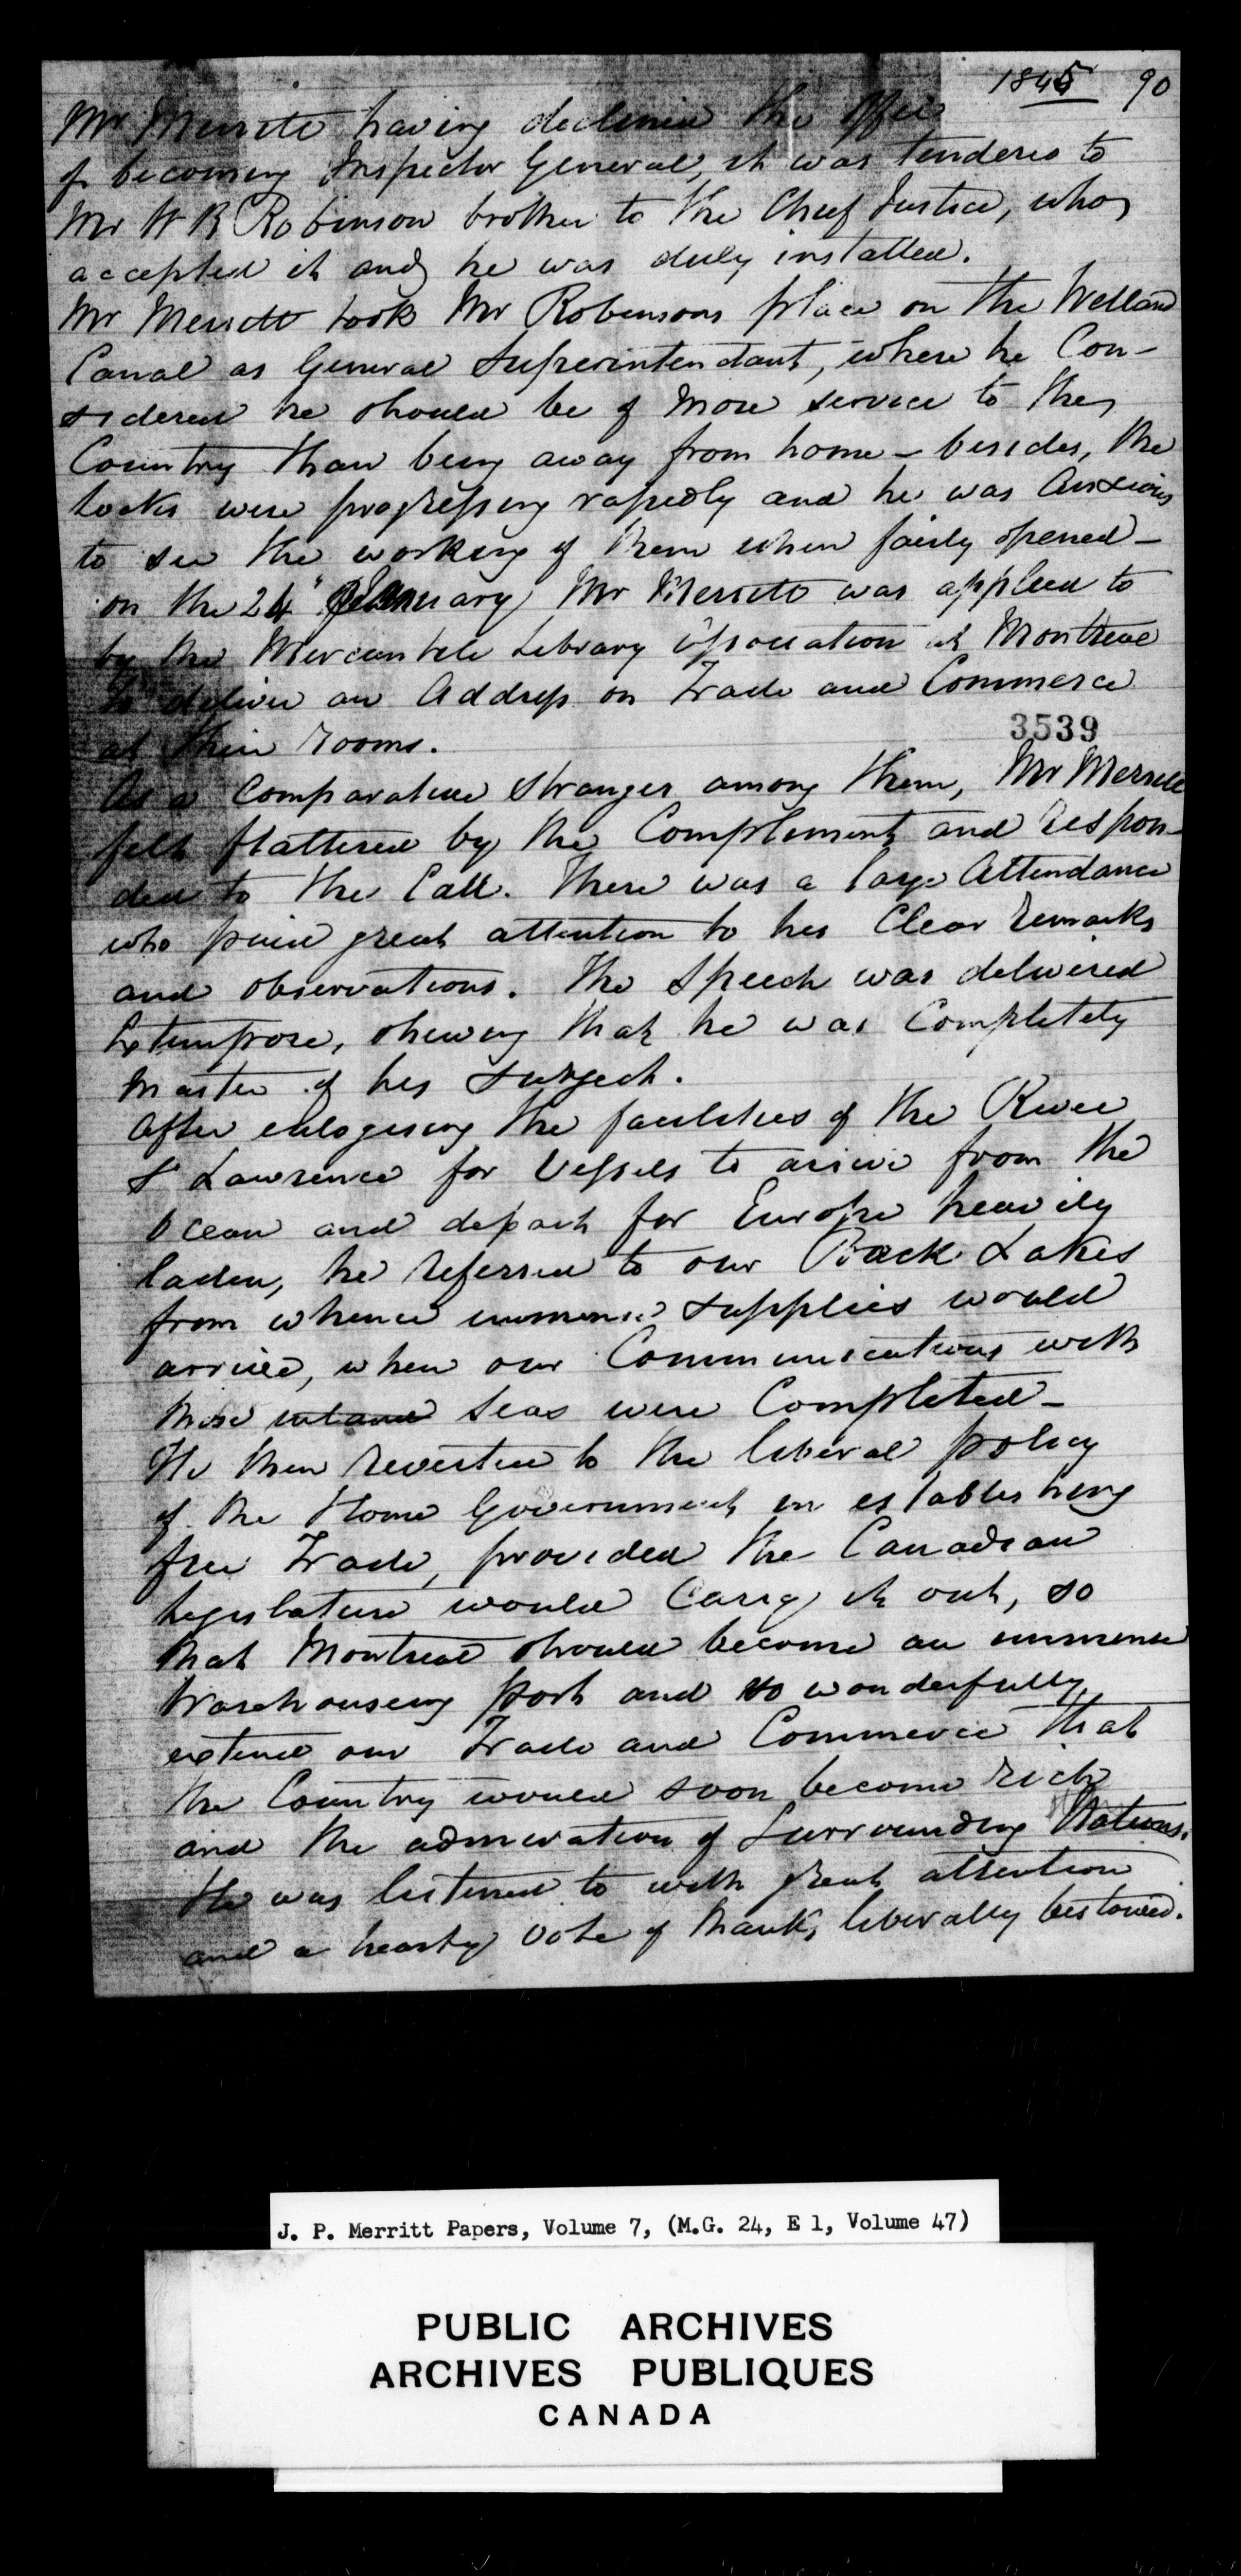 1845 90
Mr Merritt having declined the offer
of becoming Inspector General, it was tendered to
Mr W B Robinson brother to the Chief Justice, who
accepted it and he was duly installed.
Mr Merritt took Mr Robinsons place on the Welland
Canal as General Superintendant, where he Con-
sidered he should be of more service to the
Country than being away from home - besides, the
locks were progressing rapidly and he was Anxious
to see the working of them when fairly opened -
on the 24" January Mr Merritt was applied to
by the Mercantile Library Association at Montreal
to deliver an Address on Trade and Commerce
at their rooms.
3539
As a Comparative stranger among them, Mr Merritt
felt flattered by the Compliment and respon-
ded to the Call. There was a large Attendance
who paid great attention to his Clear remarks
and observations. The Speech was delivered
Extempore, shewing that he was Completely
Master of his subject.
After eulogising the facilities of the River
St Lawrence for Vessels to arrive from the
Ocean and depart for Europe heavily
laden, he referred to our Back Lakes
from whence immense supplies would
arrive, when our Communications with
those inland Seas were Completed -
He then reverted to the liberal policy
of the Home Government in establishing
free Trade, provided the Canadian
legislature would Carry it out, so
that Montreal should become an immense
Warehousing port and so wonderfully
extend our Trade and Commerce that
the Country would soon become rich
and the admiration of Surrounding Nations.
He was listened to with great attention
and a hearty Vote of thanks liberally bestowed.
J. P. Merritt Papers, Volume 7, (M.G. 24, E 1, Volume 47)
PUBLIC ARCHIVES
ARCHIVES PUBLIQUES
CANADA